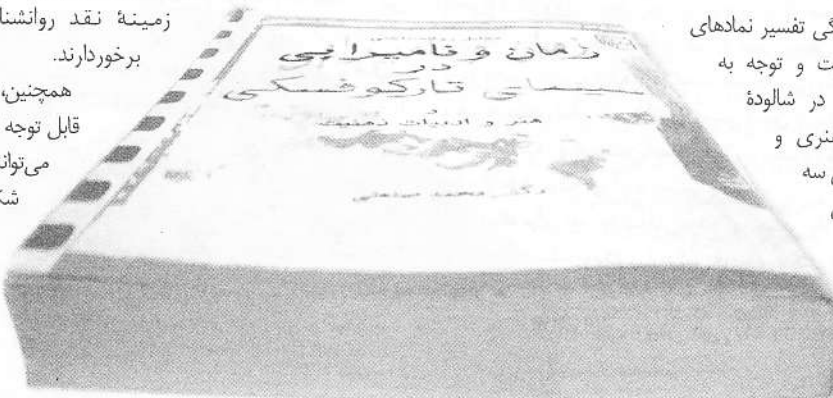 زمینهٔ نقد روانشنا
برخوردارند.
همچنین،
قابل توجه
می‌توانـ
شکـ
زمان و نامیرایی
در
سینمای تارکوفسکی
و
هنر و ادبیات ذهنیت
دکتر محمد صنعتی
کی تفسیر نمادهای
ت و توجه به
در شالودهٔ
نری و
سه